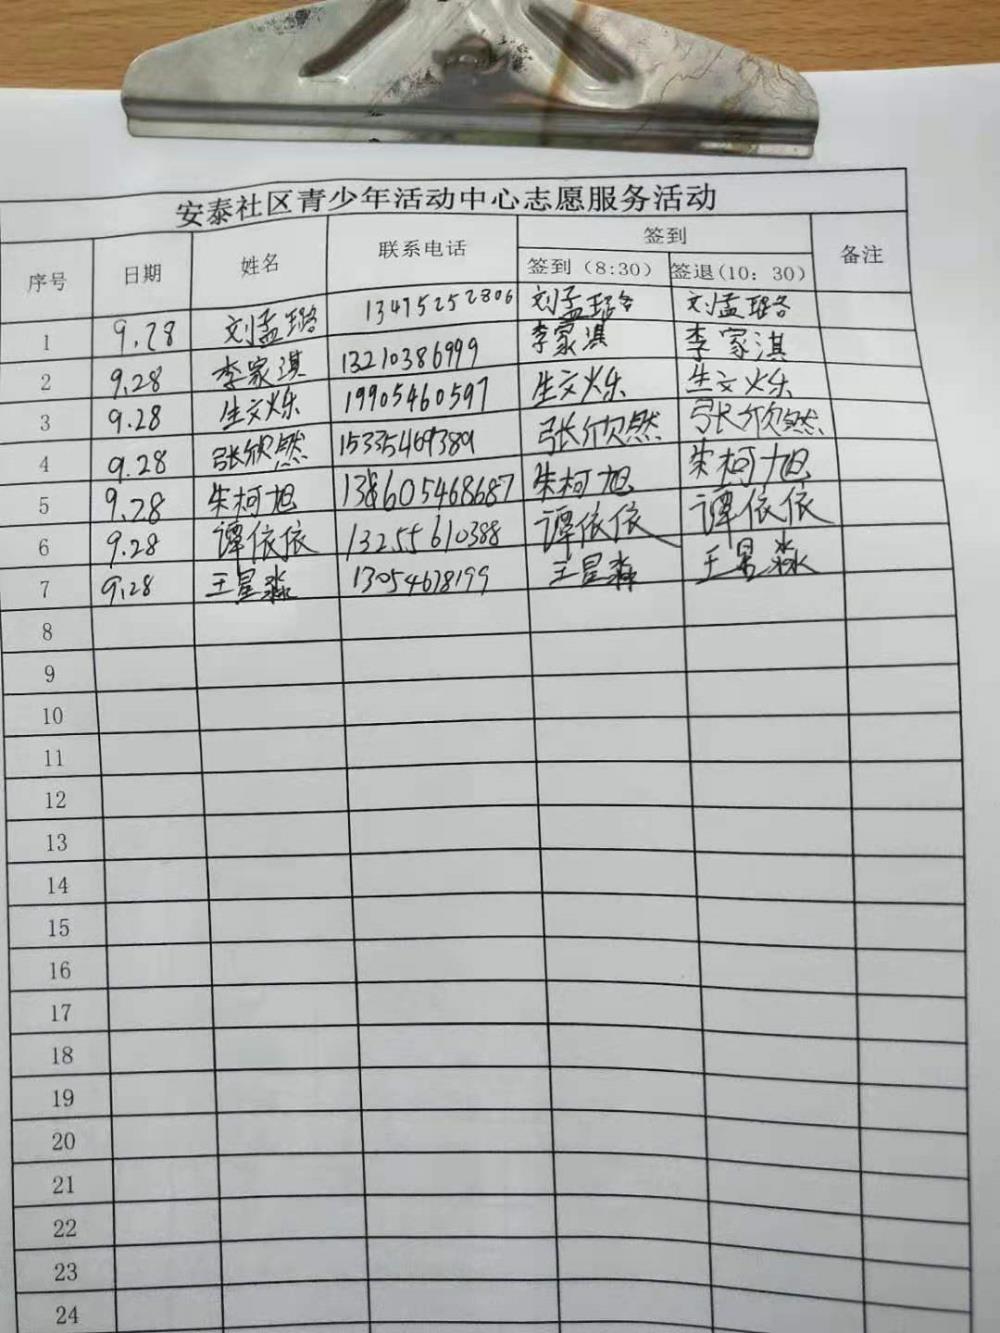 安泰社区青少年活动中心志愿服务活动
序号 日期 姓名 联系电话 签到 备注
签到（8:30） 签退(10：30)
1 9.28 刘孟璐 13475252806 刘孟璐 刘孟璐
2 9.28 李家淇 13210386999 李家淇 李家淇
3 9.28 生文烁 19905460597 生文烁 生文烁
4 9.28 张欣然 15335469389 张欣然 张欣然
5 9.28 朱柯旭 朱柯旭 朱柯旭
6 9.28 谭依依 13255610388 谭依依 谭依依
7 9.28 王星淼 13054678199 王星淼 王星淼
8
9
10
11
12
13
14
15
16
17
18
19
20
21
22
23
24